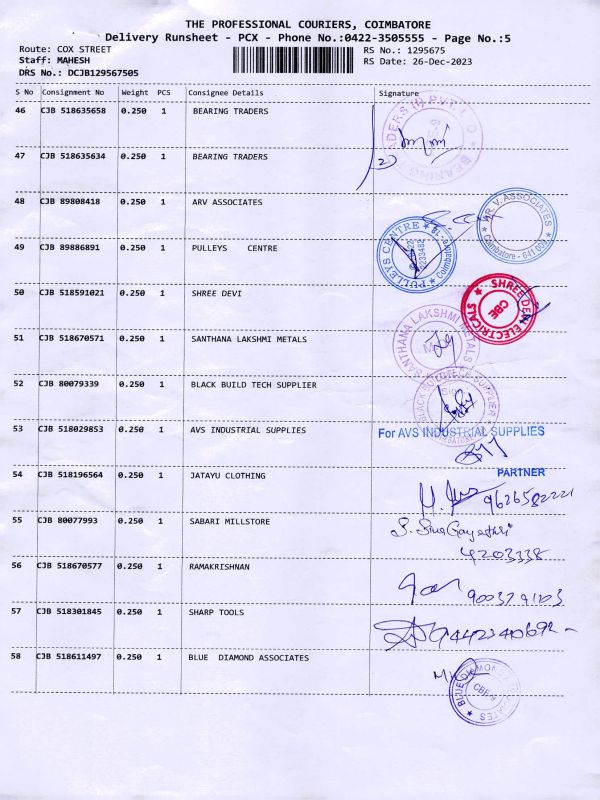 THE PROFESSIONAL COURIERS, COIMBATORE
Delivery Runsheet - PCX - Phone No.:0422-3505555 - Page No.:5
Route: COX STREET
RS No.: 1295675
Staff: MAHESH
RS Date: 26-Dec-2023
DRS No.: DCJB129567505
S No Consignment No Weight PCS Consignee Details Signature
46 CJB 518635658 0.250 1 BEARING TRADERS
47 CJB 518635634 0.250 1 BEARING TRADERS
48 CJB 89808418 0.250 1 ARV ASSOCIATES
AR. V. ASSOCIATES
Coimbatore - 641 009
49 CJB 89886891 0.250 1 PULLEYS CENTRE
PULLEYS CENTRE
50 CJB 518591021 0.250 1 SHREE DEVI
SHREE DEVI ELECTRICALS
CBE
51 CJB 518670571 0.250 1 SANTHANA LAKSHMI METALS
SANTHANA LAKSHMI METALS
52 CJB 80079339 0.250 1 BLACK BUILD TECH SUPPLIER
53 CJB 518029853 0.250 1 AVS INDUSTRIAL SUPPLIES
For AVS INDUSTRIAL SUPPLIES
PARTNER
54 CJB 518196564 0.250 1 JATAYU CLOTHING
9626582221
55 CJB 80077993 0.250 1 SABARI MILLSTORE
4203338
56 CJB 518670577 0.250 1 RAMAKRISHNAN
57 CJB 518301845 0.250 1 SHARP TOOLS
58 CJB 518611497 0.250 1 BLUE DIAMOND ASSOCIATES
BLUE DIAMOND ASSOCIATES